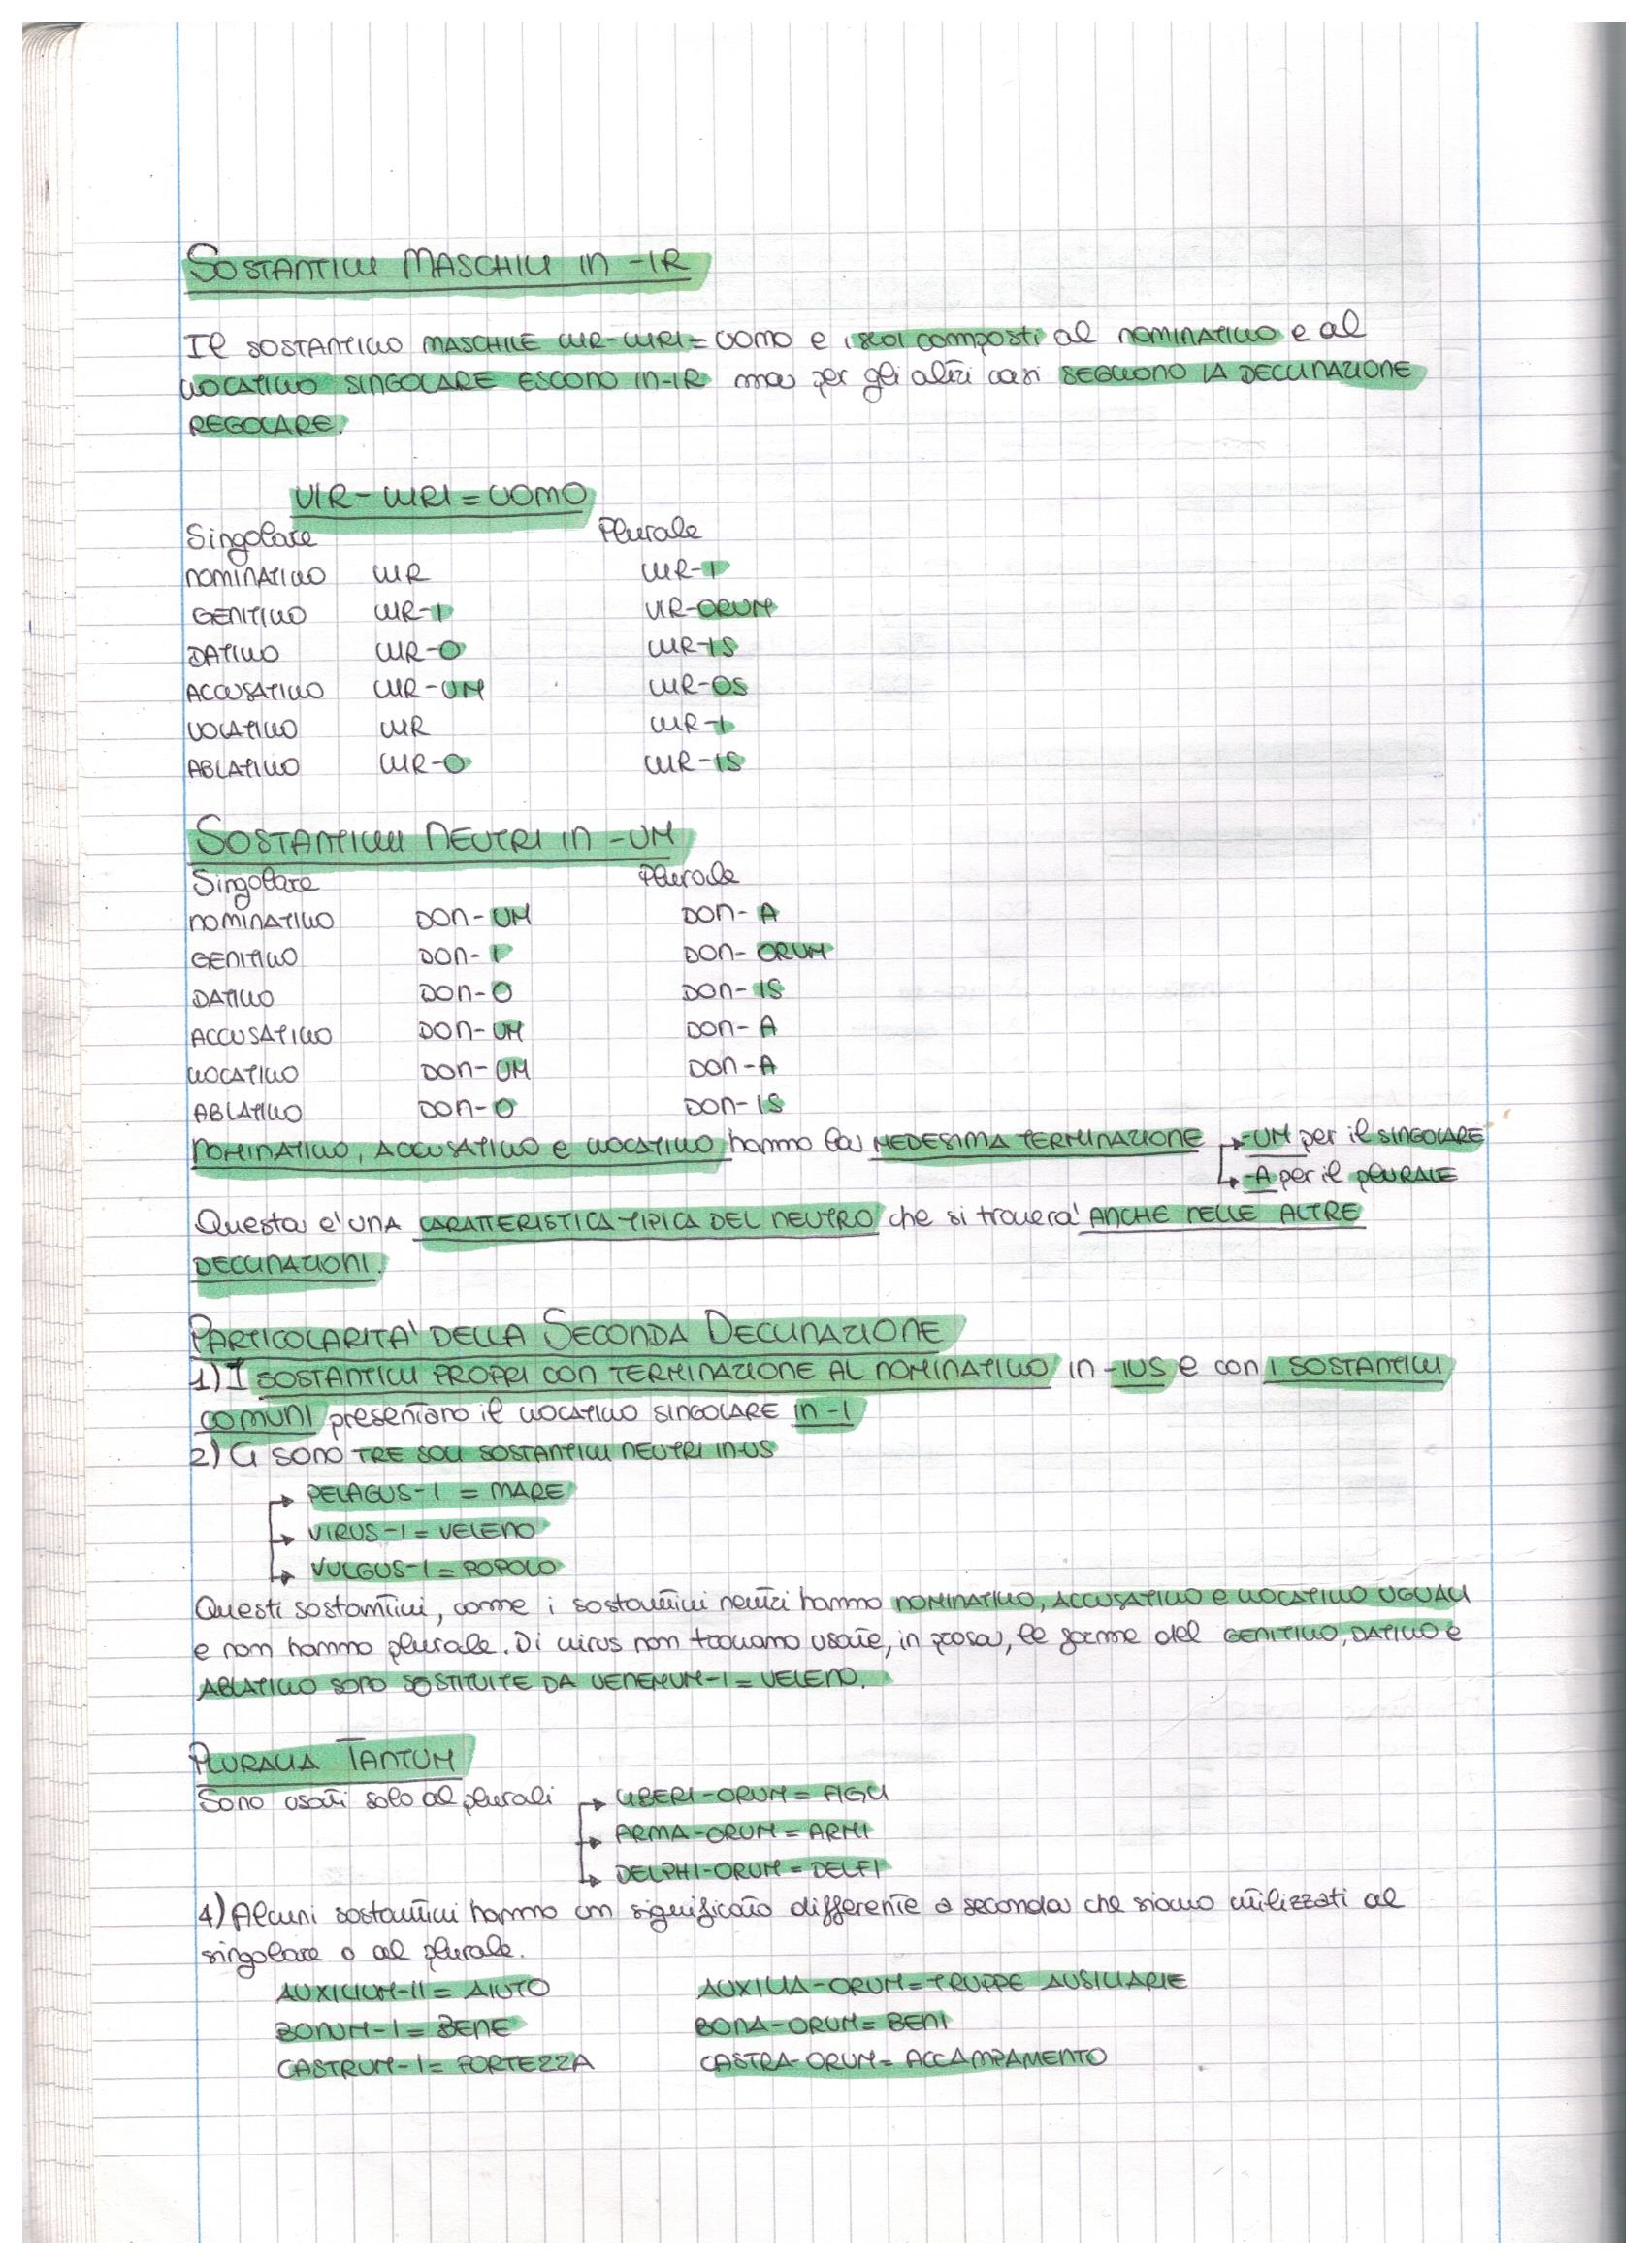 SOSTANTIVI MASCHILI IN -IR
Il SOSTANTIVO MASCHILE VIR-VIRI = UOMO e i suoi composti al NOMINATIVO e al
VOCATIVO SINGOLARE ESCONO IN -IR ma per gli altri casi SEGUONO LA DECLINAZIONE
REGOLARE.
VIR-VIRI = UOMO
Singolare Plurale
NOMINATIVO VIR VIR-I
GENITIVO VIR-I VIR-ORUM
DATIVO VIR-O VIR-IS
ACCUSATIVO VIR-UM VIR-OS
VOCATIVO VIR VIR-I
ABLATIVO VIR-O VIR-IS
SOSTANTIVI NEUTRI IN -UM
Singolare Plurale
NOMINATIVO DON-UM DON-A
GENITIVO DON-I DON-ORUM
DATIVO DON-O DON-IS
ACCUSATIVO DON-UM DON-A
VOCATIVO DON-UM DON-A
ABLATIVO DON-O DON-IS
NOMINATIVO, ACCUSATIVO e VOCATIVO hanno la MEDESIMA TERMINAZIONE → -UM per il SINGOLARE
→ -A per il PLURALE
Questa e' UNA CARATTERISTICA TIPICA DEL NEUTRO che si trovera' ANCHE NELLE ALTRE
DECLINAZIONI.
PARTICOLARITA' DELLA SECONDA DECLINAZIONE
1) I SOSTANTIVI PROPRI CON TERMINAZIONE AL NOMINATIVO IN -IUS e con I SOSTANTIVI
COMUNI presentano il VOCATIVO SINGOLARE IN -I
2) CI SONO TRE SOLI SOSTANTIVI NEUTRI IN-US
→ PELAGUS-I = MARE
→ VIRUS-I = VELENO
→ VULGUS-I = POPOLO
Questi sostantivi, come i sostantivi neutri hanno NOMINATIVO, ACCUSATIVO e VOCATIVO UGUALI
e non hanno plurale. Di virus non troviamo usate, in prosa, le forme del GENITIVO, DATIVO e
ABLATIVO SONO SOSTITUITE DA VENENUM-I = VELENO.
PLURALIA TANTUM
Sono usati solo al plurali → LIBERI-ORUM = FIGLI
→ ARMA-ORUM = ARMI
→ DELPHI-ORUM = DELFI
4) Alcuni sostantivi hanno un significato differente a seconda che siano utilizzati al
singolare o al plurale.
AUXILIUM-II = AIUTO AUXILIA-ORUM = TRUPPE AUSILIARIE
BONUM-I = BENE BONA-ORUM = BENI
CASTRUM-I = FORTEZZA CASTRA-ORUM = ACCAMPAMENTO